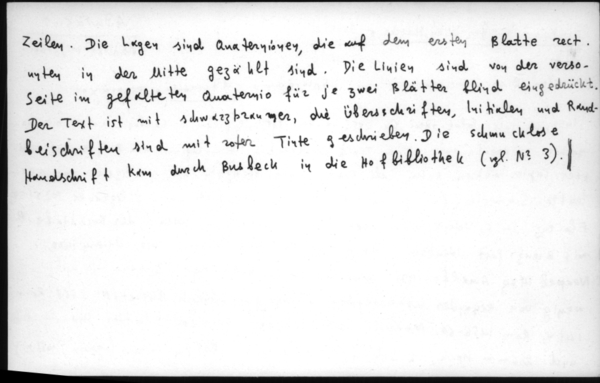 Zeilen. Die Lagen sind Quaternionen, die auf dem ersten Blatte rect.
unten in der Mitte gezählt sind. Die Linien sind von der verso-
Seite im gefalteten Quaternio für je zwei Blätter blind eingedrückt.
Der Text ist mit schwarzbrauner, die Überschriften, Initialen und Rand-
beischriften sind mit roter Tinte geschrieben. Die schmucklose
Handschrift kam durch Busbeck in die Hofbibliothek (vgl. N° 3).